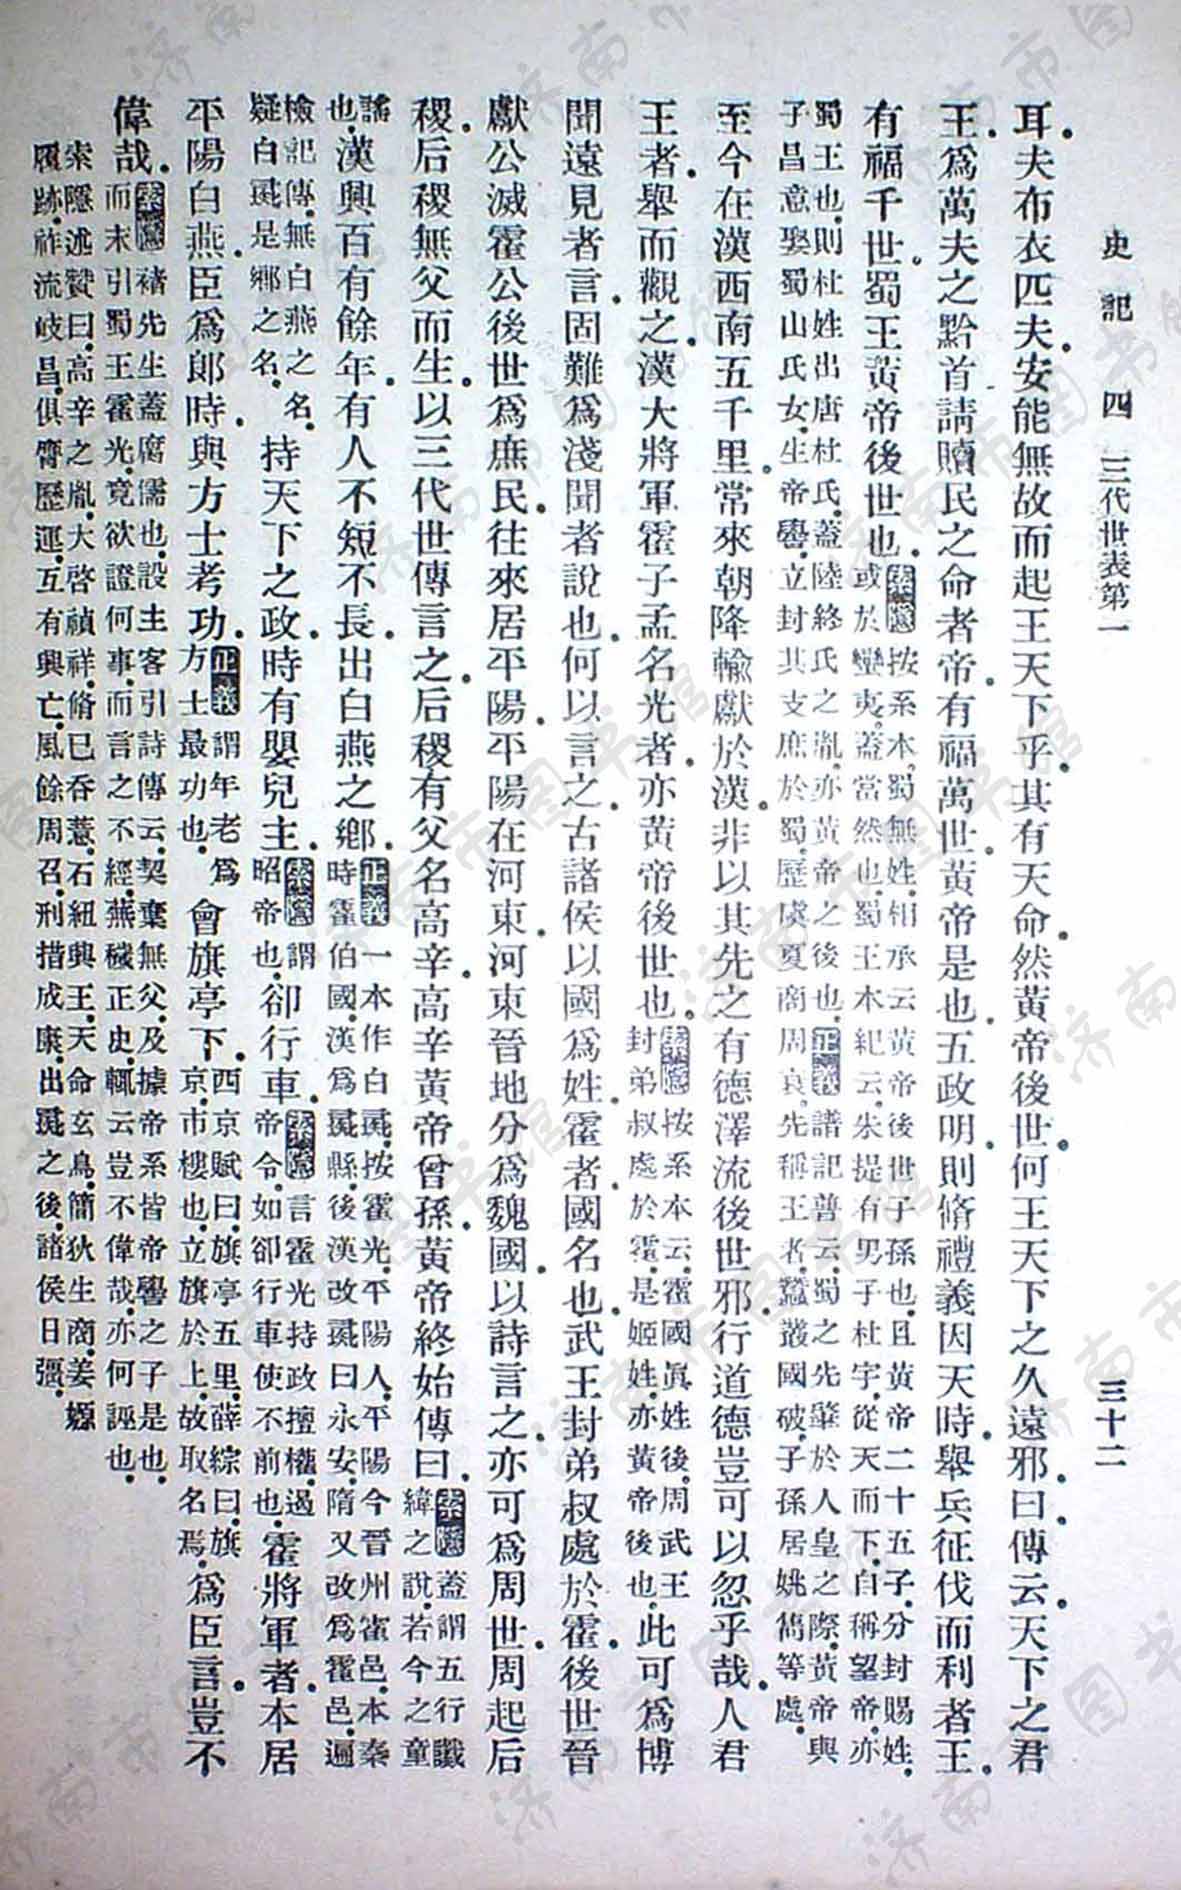 史記 四 三代世表第一 三十二
耳夫布衣匹夫安能無故而起王天下乎其有天命然黃帝後世何王天下之久遠邪曰傳云天下之君
王爲萬夫之黔首請贖民之命者帝有福萬世黃帝是也五政明則脩禮義因天時舉兵征伐而利者王
有福千世蜀王黃帝後世也索隱按系本蜀無姓相承云黃帝後世子孫也且黃帝二十五子分封賜姓
或於蠻夷蓋當然也蜀王本紀云朱提有男子杜宇從天而下自稱望帝亦
蜀王也則杜姓出唐杜氏蓋陸終氏之胤亦黃帝之後也正義譜記普云蜀之先肇於人皇之際黃帝與
子昌意娶蜀山氏女生帝嚳立封其支庶於蜀歷虞夏商周衰先稱王者蠶叢國破子孫居姚嶲等處
至今在漢西南五千里常來朝降輸獻於漢非以其先之有德澤流後世邪行道德豈可以忽乎哉人君
王者舉而觀之漢大將軍霍子孟名光者亦黃帝後世也索隱按系本云霍國眞姓後周武王
封弟叔處於霍是姬姓亦黃帝後也此可爲博
聞遠見者言固難爲淺聞者說也何以言之古諸侯以國爲姓霍者國名也武王封弟叔處於霍後世晉
獻公滅霍公後世爲庶民往來居平陽平陽在河東河東晉地分爲魏國以詩言之亦可爲周世周起后
稷后稷無父而生以三代世傳言之后稷有父名高辛高辛黃帝曾孫黃帝終始傳曰索隱蓋謂五行讖
緯之說若今之童
謠
也漢興百有餘年有人不短不長出白燕之鄉正義一本作白彘按霍光平陽人平陽今晉州霍邑本秦
時霍伯國漢爲彘縣後漢改彘曰永安隋又改爲霍邑遍
檢記傳無白燕之名
疑白彘是鄉之名持天下之政時有嬰兒主索隱謂
昭帝也卻行車索隱言霍光持政擅權逼
帝令如卻行車使不前也霍將軍者本居
平陽白燕臣爲郎時與方士考功正義謂年老爲
方士最功也會旗亭下西京賦曰旗亭五里薛綜曰旗
京市樓也立旗於上故取名焉爲臣言豈不
偉哉索隱褚先生蓋腐儒也設主客引詩傳云契棄無父及據帝系皆帝嚳之子是也
而末引蜀王霍光竟欲證何事而言之不經蕪穢正史輒云豈不偉哉亦何誣也
索隱述贊曰高辛之胤大啓禎祥脩已吞薏石紐興王天命玄鳥簡狄生商姜嫄
履跡祚流岐昌俱膺歷運互有興亡風餘周召刑措成康出彘之後諸侯日彊